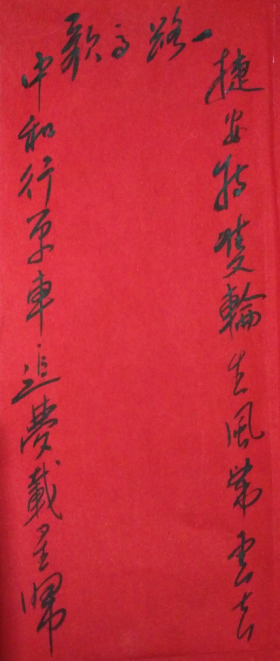 一路高歌
捷安特雙輪生風乘云去
中和行单車追夢載星歸